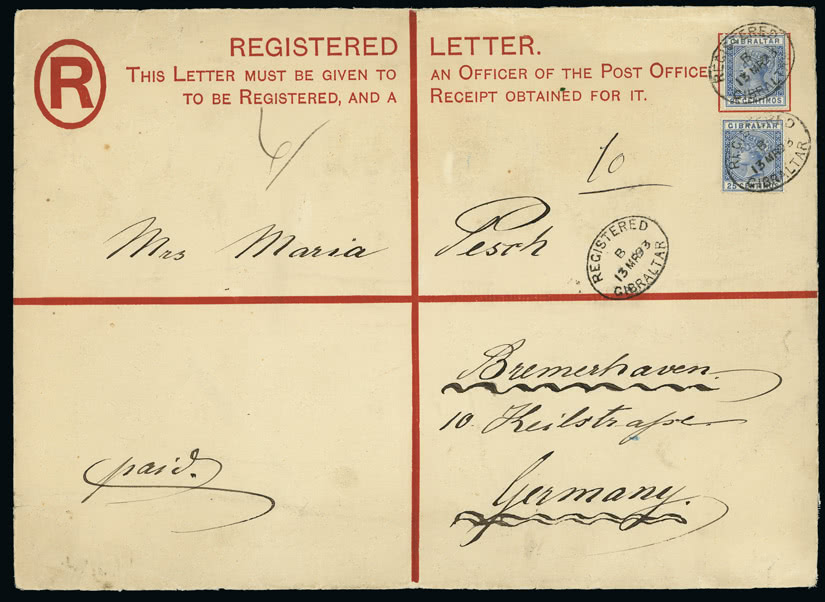 REGISTERED LETTER.
R
THIS LETTER MUST BE GIVEN TO AN OFFICER OF THE POST OFFICE
TO BE REGISTERED, AND A RECEIPT OBTAINED FOR IT.
REGISTERED
B
13 MR 93
GIBRALTAR
GIBRALTAR
25 CENTIMOS
REGISTERED
B
13 MR 93
GIBRALTAR
GIBRALTAR
25
10
Mrs Maria Pesch
REGISTERED
B
13 MR 93
GIBRALTAR
Bremerhaven.
10. Keilstraße
paid.
Germany.